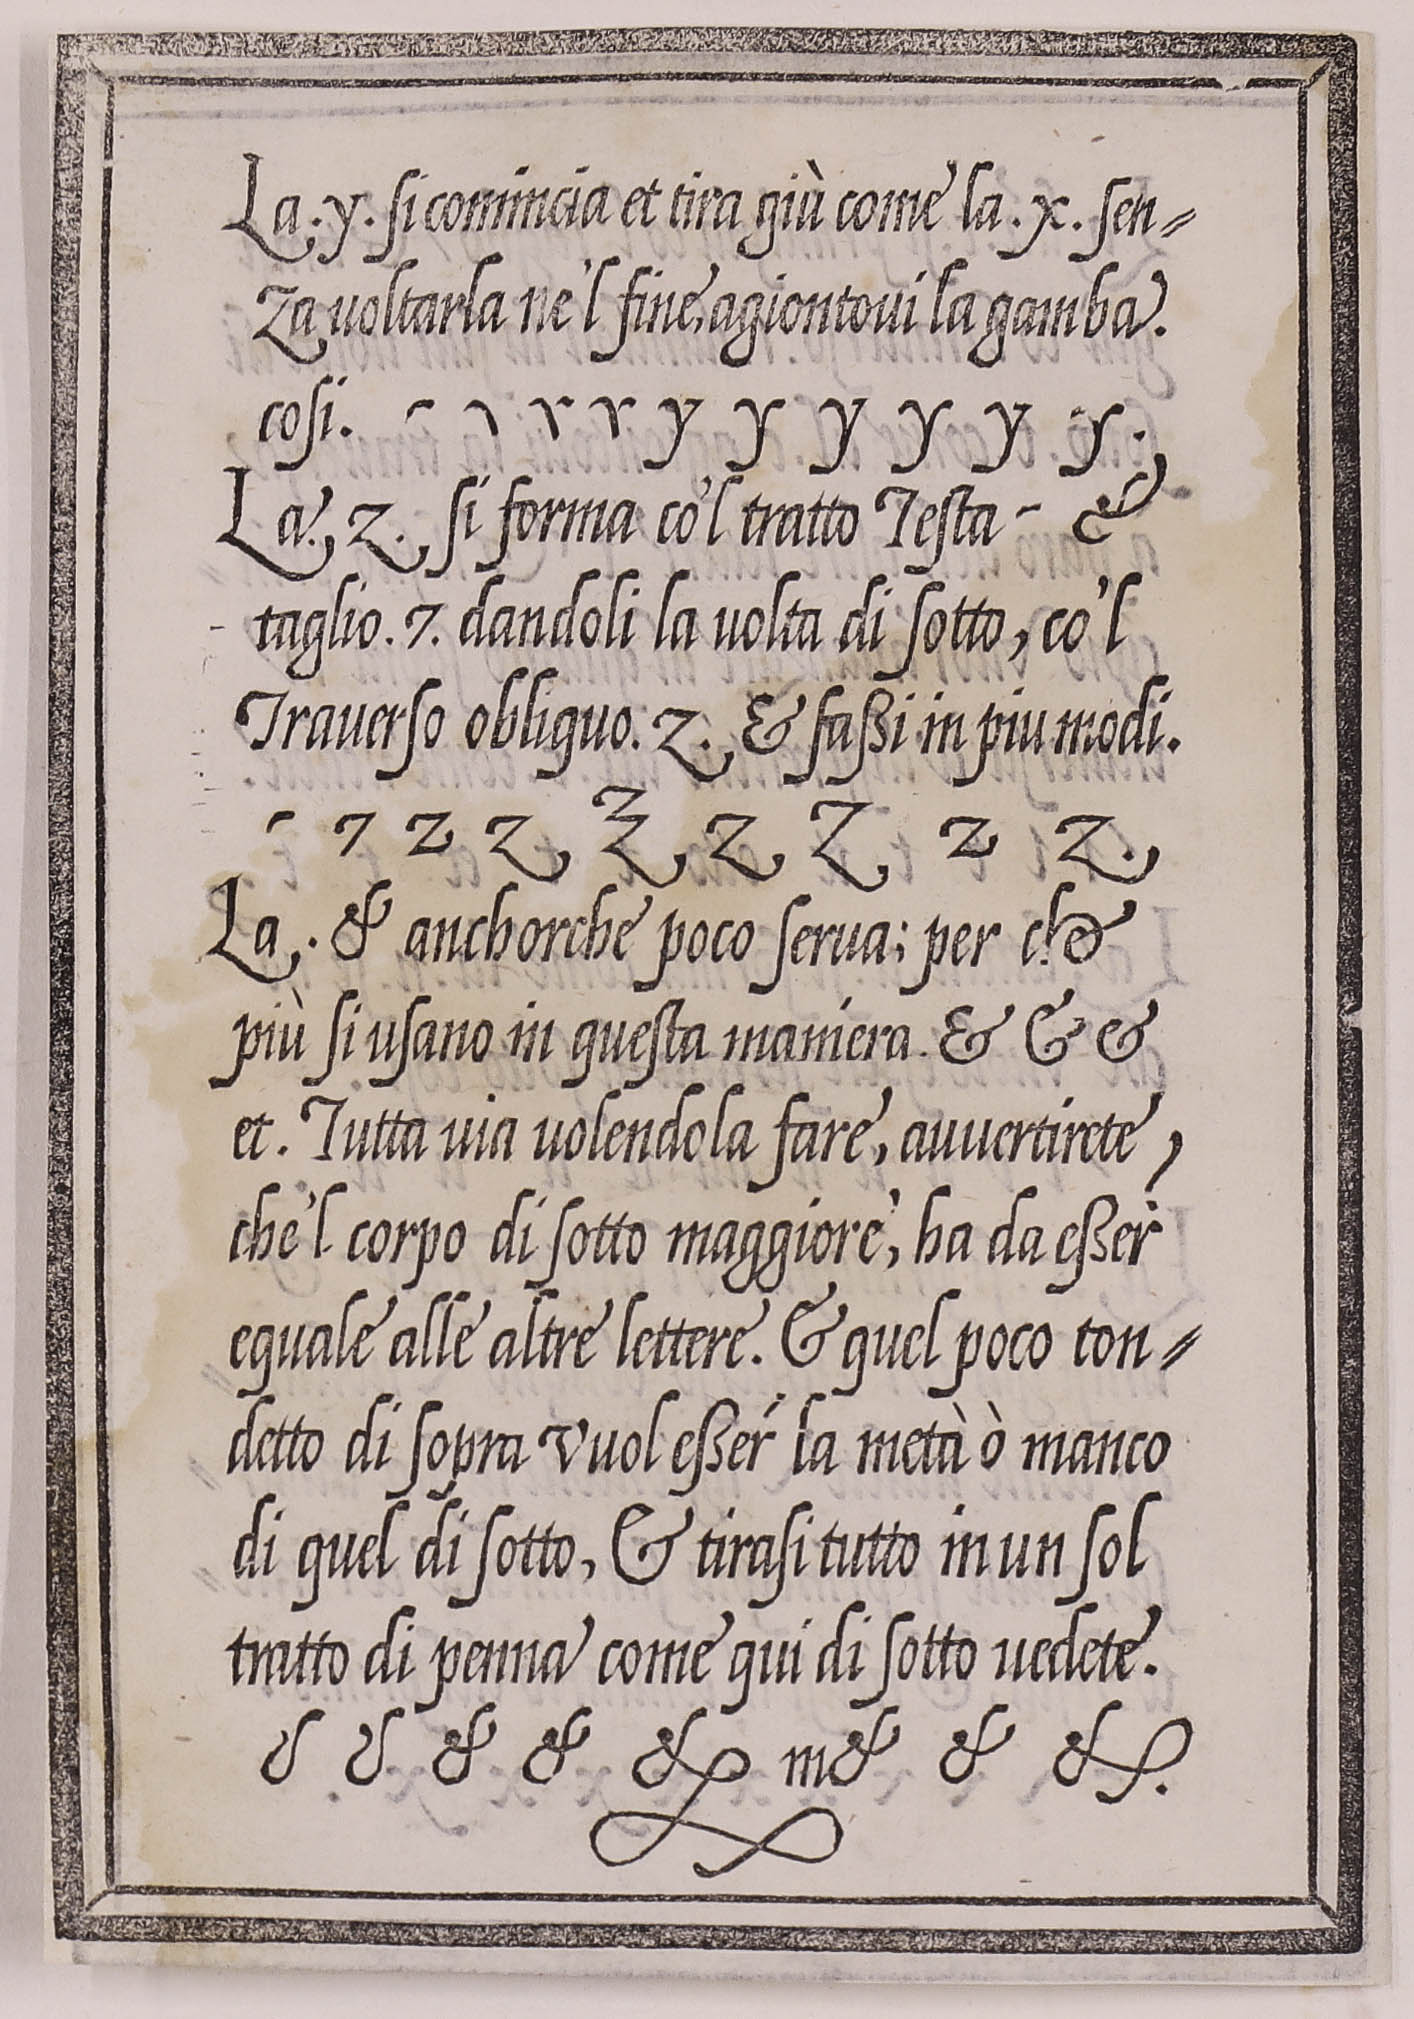 La . y . si comincia et tira giù come la . x . sen=
za voltarla ne'l fine, agiontoui la gamba.
cosi. y y y y y y.
La . z . si forma co'l tratto Testa - &
taglio. 7. dandoli la uolta di sotto, co'l
Trauerso obliquo. z. & faßi in piu modi.
- 7 z z z z z z z.
La . & anchorche poco serua; per che
più si usano in questa maniera. & & &
et. Tutta uia uolendola fare, auuertirete,
che'l corpo di sotto maggiore, ha da eßer
equale alle altre lettere. & quel poco ton=
detto di sopra vuol eßer la metà ò manco
di quel di sotto, & tirasi tutto in un sol
tratto di penna come qui di sotto uedete.
& & & m& & &.